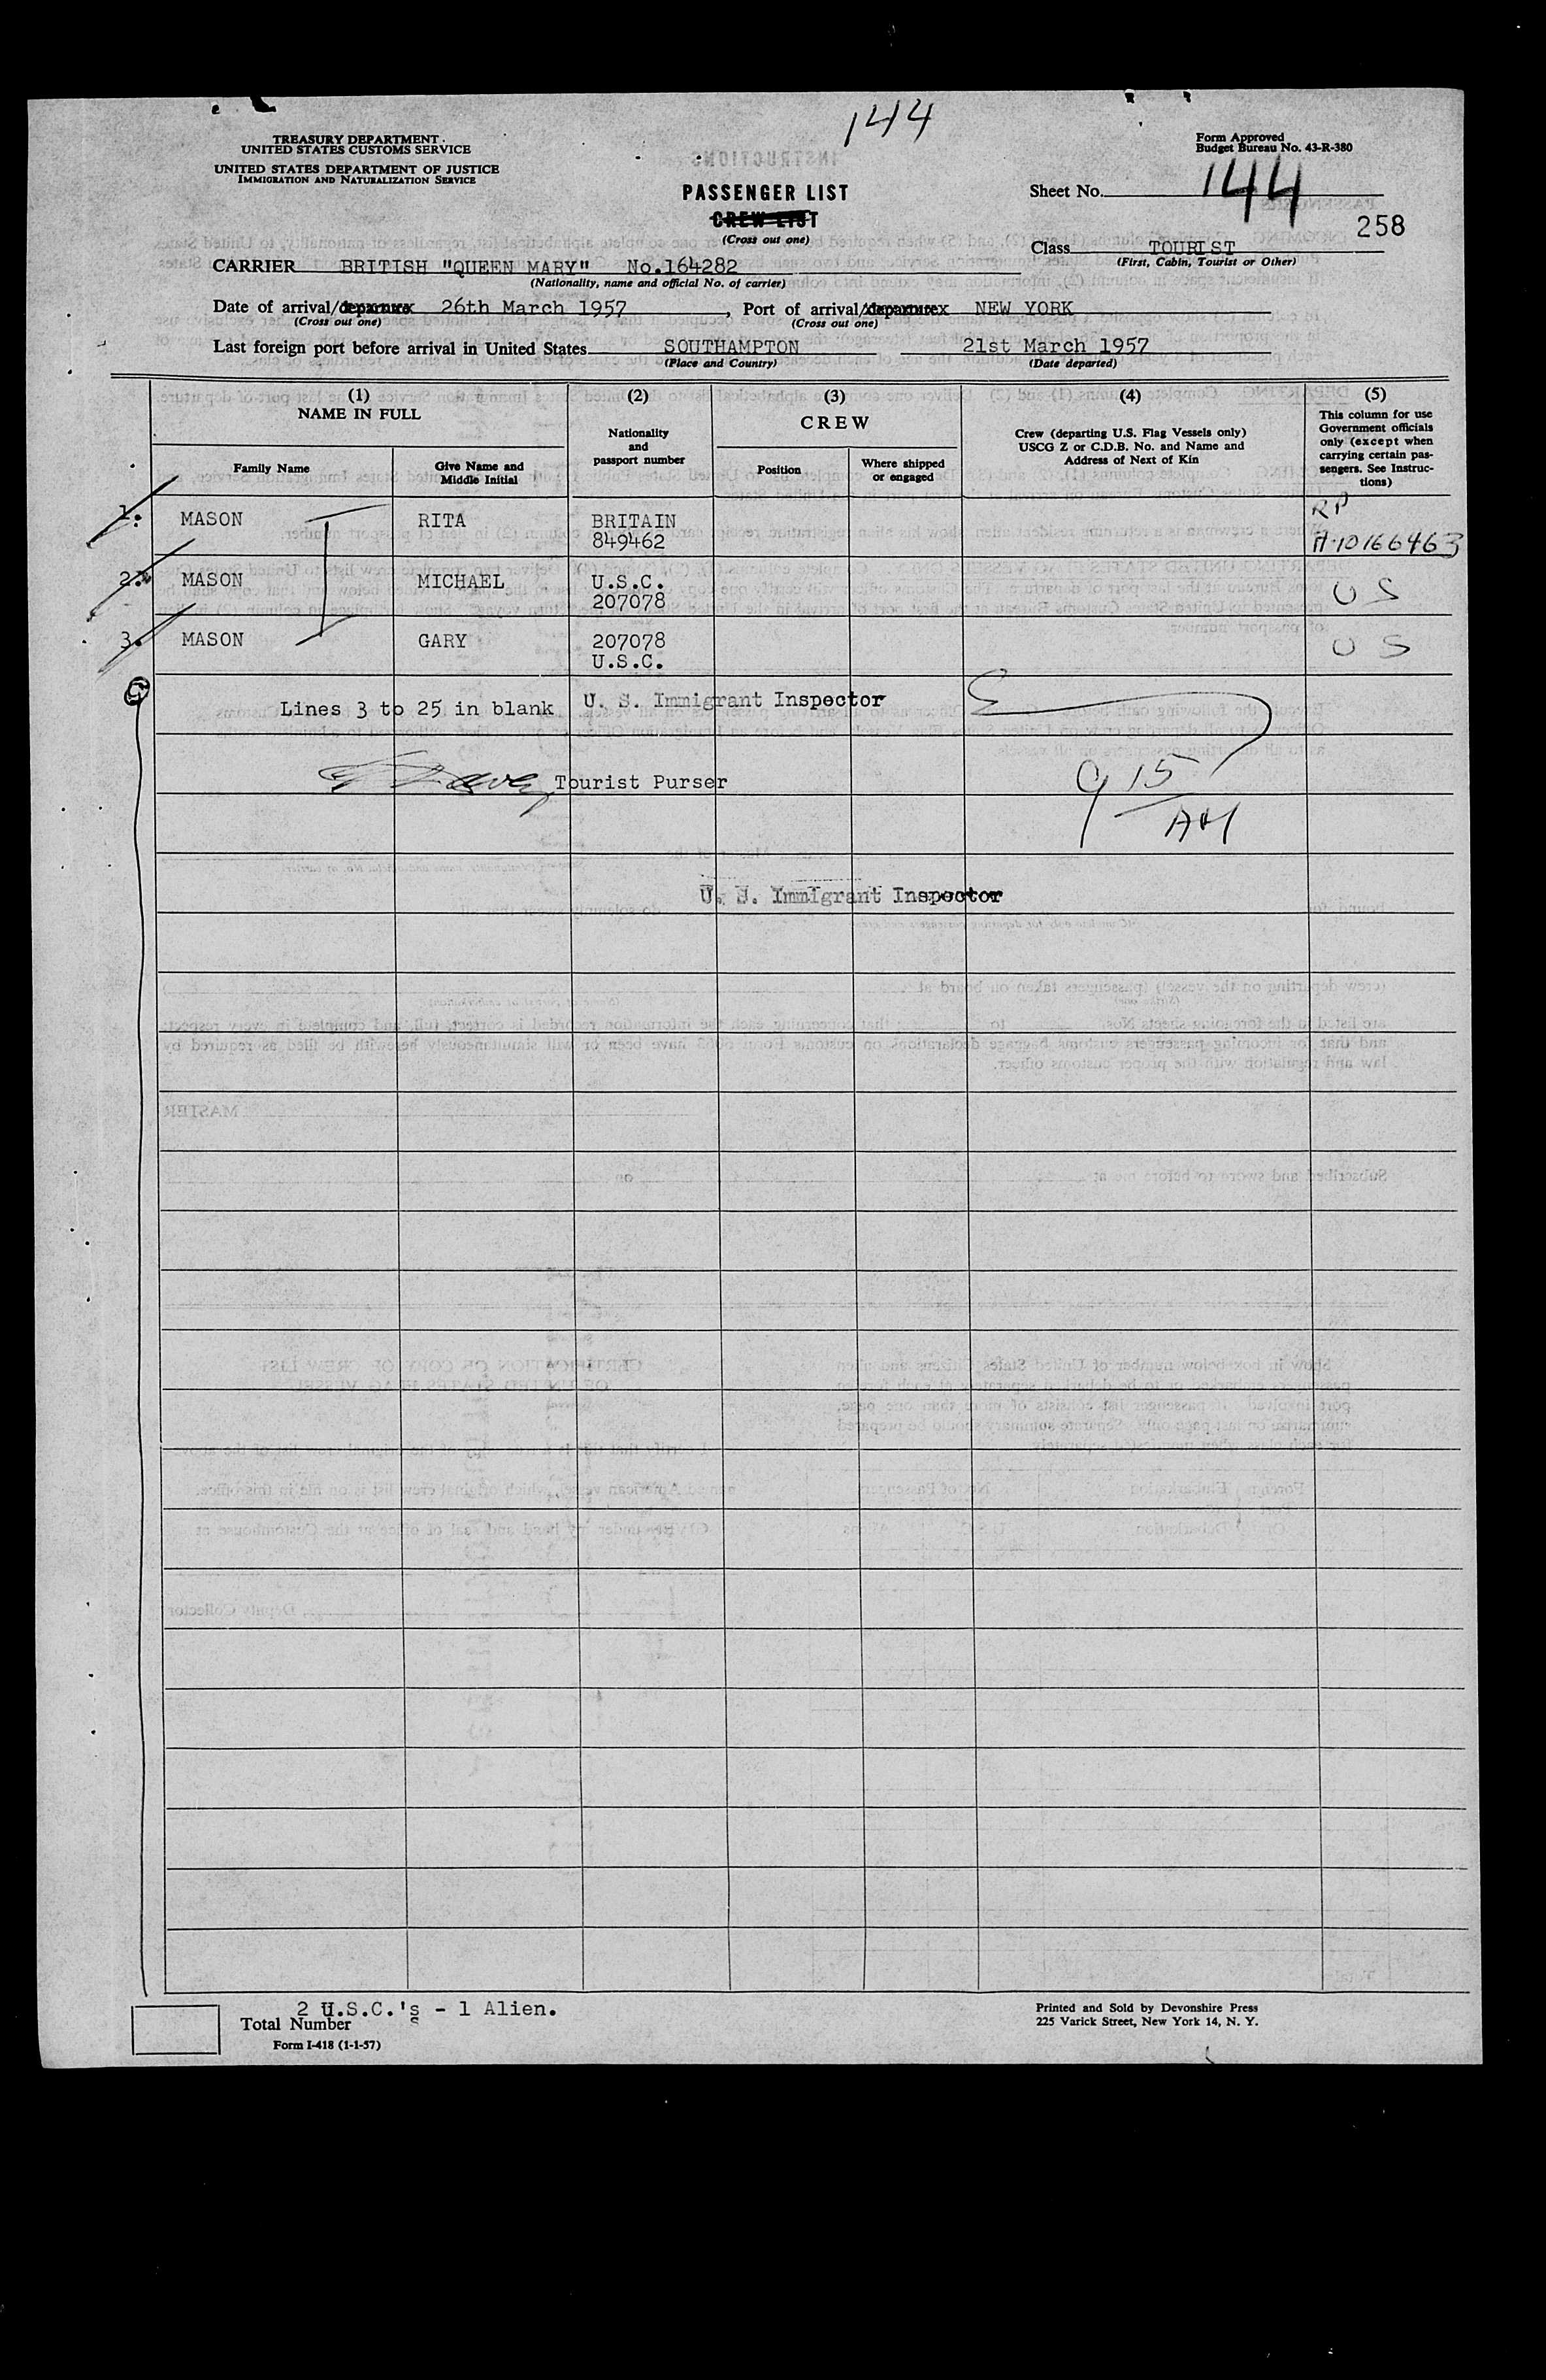 144
TREASURY DEPARTMENT
UNITED STATES CUSTOMS SERVICE
UNITED STATES DEPARTMENT OF JUSTICE
IMMIGRATION AND NATURALIZATION SERVICE
Form Approved
Budget Bureau No. 43-R-380
PASSENGER LIST
CREW LIST
(Cross out one)
Sheet No. 144
258
Class TOURIST
(First, Cabin, Tourist or Other)
CARRIER BRITISH "QUEEN MARY" No.164282
(Nationality, name and official No. of carrier)
Date of arrival/departure 26th March 1957, Port of arrival/departure NEW YORK
(Cross out one) (Cross out one)
Last foreign port before arrival in United States SOUTHAMPTON 21st March 1957
(Place and Country) (Date departed)
(1) (2) (3) (4) (5)
NAME IN FULL
Family Name
Give Name and Middle Initial
Nationality and passport number
CREW
Position
Where shipped or engaged
Crew (departing U.S. Flag Vessels only)
USCG Z or C.D.B. No. and Name and
Address of Next of Kin
This column for use
Government officials
only (except when
carrying certain pas-
sengers. See Instruc-
tions)
1. MASON RITA BRITAIN RP
849462 A-10166463
2. MASON MICHAEL U.S.C. US
207078
3. MASON GARY 207078 US
U.S.C.
Lines 3 to 25 in blank U. S. Immigrant Inspector
Tourist Purser
9 15
AM
U. S. Immigrant Inspector
2 U.S.C.'s - 1 Alien.
Total Number
Form I-418 (1-1-57)
Printed and Sold by Devonshire Press
225 Varick Street, New York 14, N. Y.